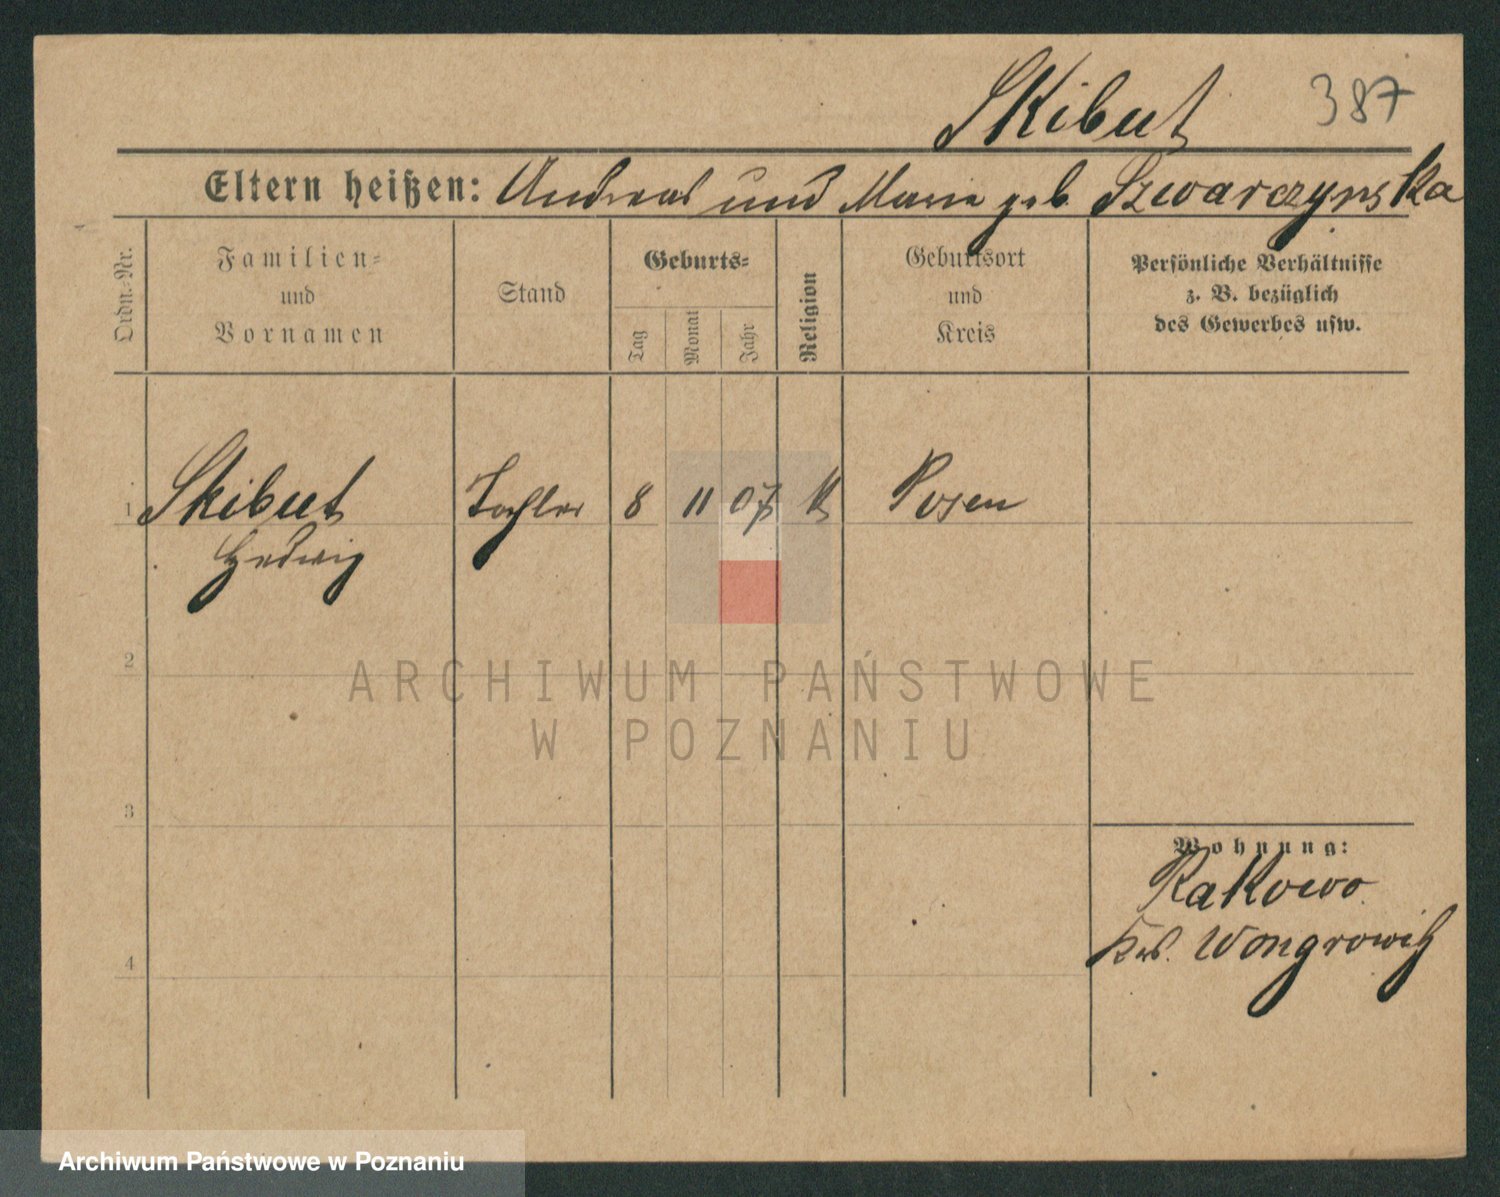 Skibut 387
Eltern heißen: Andreas und Marie geb. Szwarczynska
Ordn.-Nr.
Familien-
und
Vornamen
Stand
Geburts-
Tag
Monat
Jahr
Religion
Geburtsort
und
Kreis
Persönliche Verhältnisse
z. B. bezüglich
des Gewerbes usw.
1 Skibut Tochter 8 11 07 K Posen
Hedwig
2
ARCHIWUM PAŃSTWOWE
W POZNANIU
3
Wohnung:
Rakowo
Krs. Wongrowitz
4
Archiwum Państwowe w Poznaniu